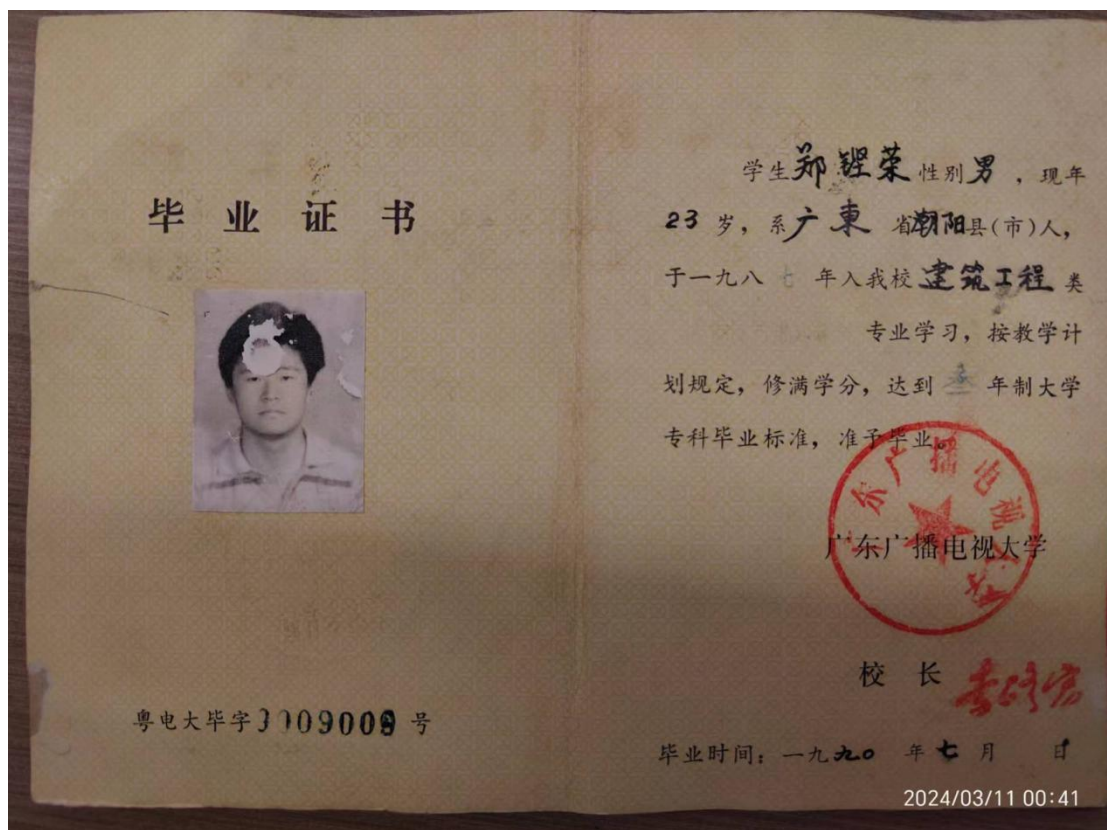 毕业证书
粤电大毕字 号
学生郑铿荣性别男，现年
23岁，系广東省潮阳县(市)人，
于一九八七年入我校建筑工程类
专业学习，按教学计
划规定，修满学分，达到叁年制大学
专科毕业标准，准予毕业。
广东广播电视大学
广东广播电视大学
校长
毕业时间：一九九0年七月 日
2024/03/11 00:41